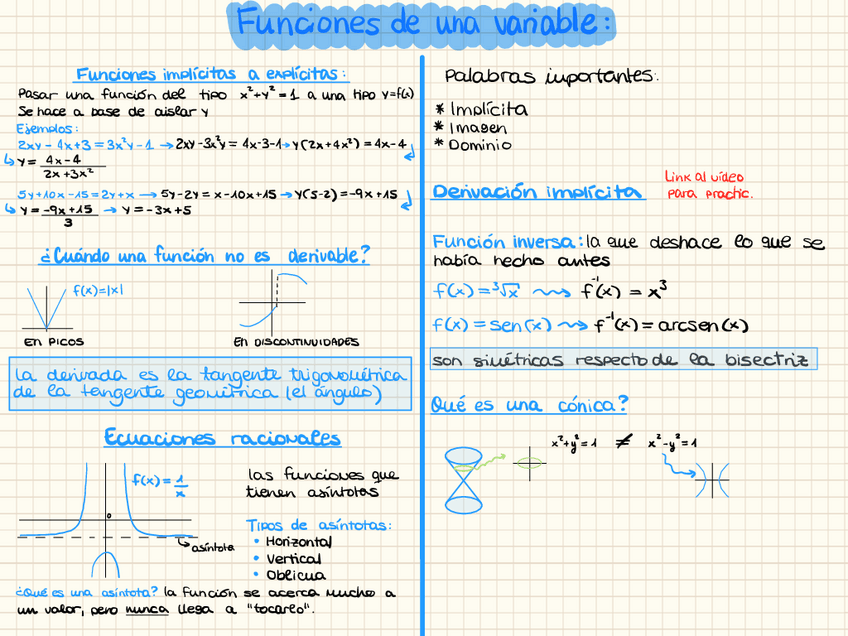 Funciones de una variable:
Funciones implícitas a explícitas:
Pasar una función del tipo x²+y²=1 a una tipo y=f(x)
Se hace a base de aislar y
Ejemplos:
2xy - 4x+3 = 3x²y - 1 → 2xy-3x²y = 4x-3-1 → y(2x+4x²) = 4x-4
↳ y = 4x-4 / 2x+3x²
5y+10x-15 = 2y+x → 5y-2y = x-10x+15 → y(5-2) = -9x+15
↳ y = -9x+15 / 3 → y = -3x+5
¿Cuándo una función no es derivable?
f(x)=|x|
EN PICOS
EN DISCONTINUIDADES
La derivada es la tangente trigonométrica
de la tangente geométrica (el ángulo)
Ecuaciones racionales
f(x) = 1/x
0
asíntota
las funciones que
tienen asíntotas
Tipos de asíntotas:
• Horizontal
• Vertical
• Oblicua
¿Qué es una asíntota? la función se acerca mucho a
un valor, pero nunca llega a "tocarlo".
Palabras importantes:
* Implícita
* Imagen
* Dominio
Derivación implícita
Link al vídeo
para practic.
Función inversa: la que deshace lo que se
había hecho antes
f(x) = ³√x ⇝ f⁻¹(x) = x³
f(x) = sen(x) ⇝ f⁻¹(x) = arcsen(x)
son simétricas respecto de la bisectriz
Qué es una cónica?
x²+y²=1 ≠ x²-y²=1